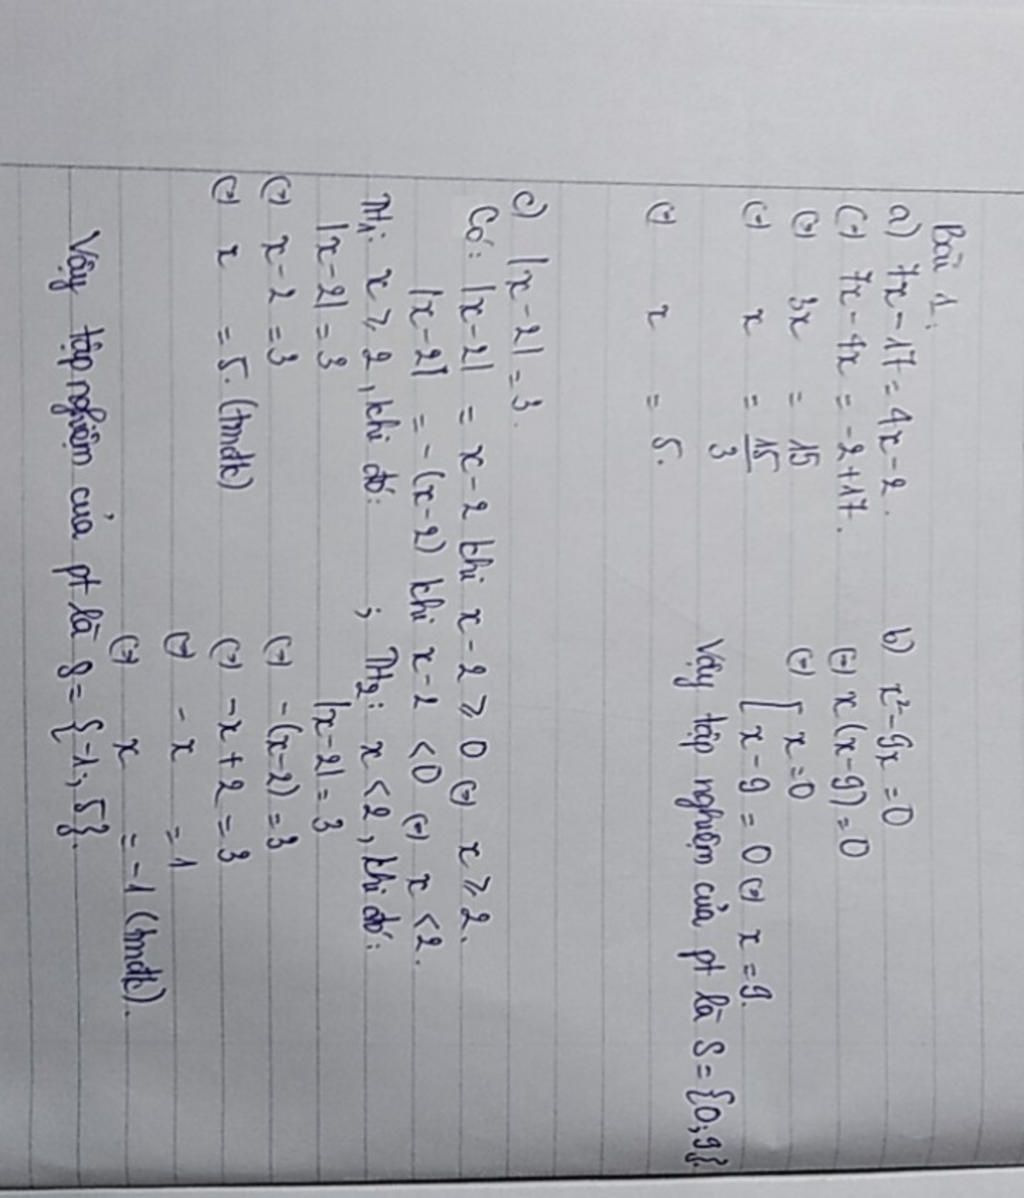 Bài 1.
a) 7x - 17 = 4x - 2.
(=) 7x - 4x = -2 + 17.
(=) 3x = 15
(=) x = 15/3
(=) x = 5.
b) x² - 9x = 0
(=) x(x - 9) = 0
(=) [ x = 0
[ x - 9 = 0 (=) x = 9.
Vậy tập nghiệm của pt là S = {0; 9}.
c) |x - 2| = 3.
Có: |x - 2| = x - 2 khi x - 2 ≥ 0 (=) x ≥ 2.
|x - 2| = -(x - 2) khi x - 2 < 0 (=) x < 2.
TH1: x ≥ 2, khi đó: ;
|x - 2| = 3
(=) x - 2 = 3
(=) x = 5. (tmđk)
TH2: x < 2, khi đó:
|x - 2| = 3
(=) -(x - 2) = 3
(=) -x + 2 = 3
(=) -x = 1
(=) x = -1 (tmđk).
Vậy tập nghiệm của pt là S = {-1; 5}.